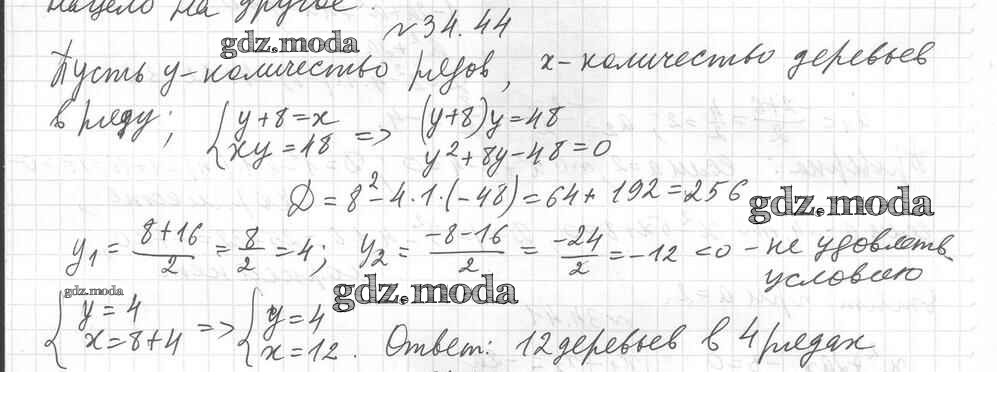 нацело на другое.
№34.44
gdz.moda
Пусть y - количество рядов, x - количество деревьев
в ряду; { y+8=x => (y+8)y=48
xy=48 y²+8y-48=0
D=8²-4·1·(-48)=64+192=256
gdz.moda
y₁= 8+16/2 = 8/2 =4; y₂= -8-16/2 = -24/2 =-12<0 - не удовлетв.
условию
gdz.moda
gdz.moda
{ y=4 => { y=4
x=8+4 x=12. Ответ: 12 деревьев в 4 рядах